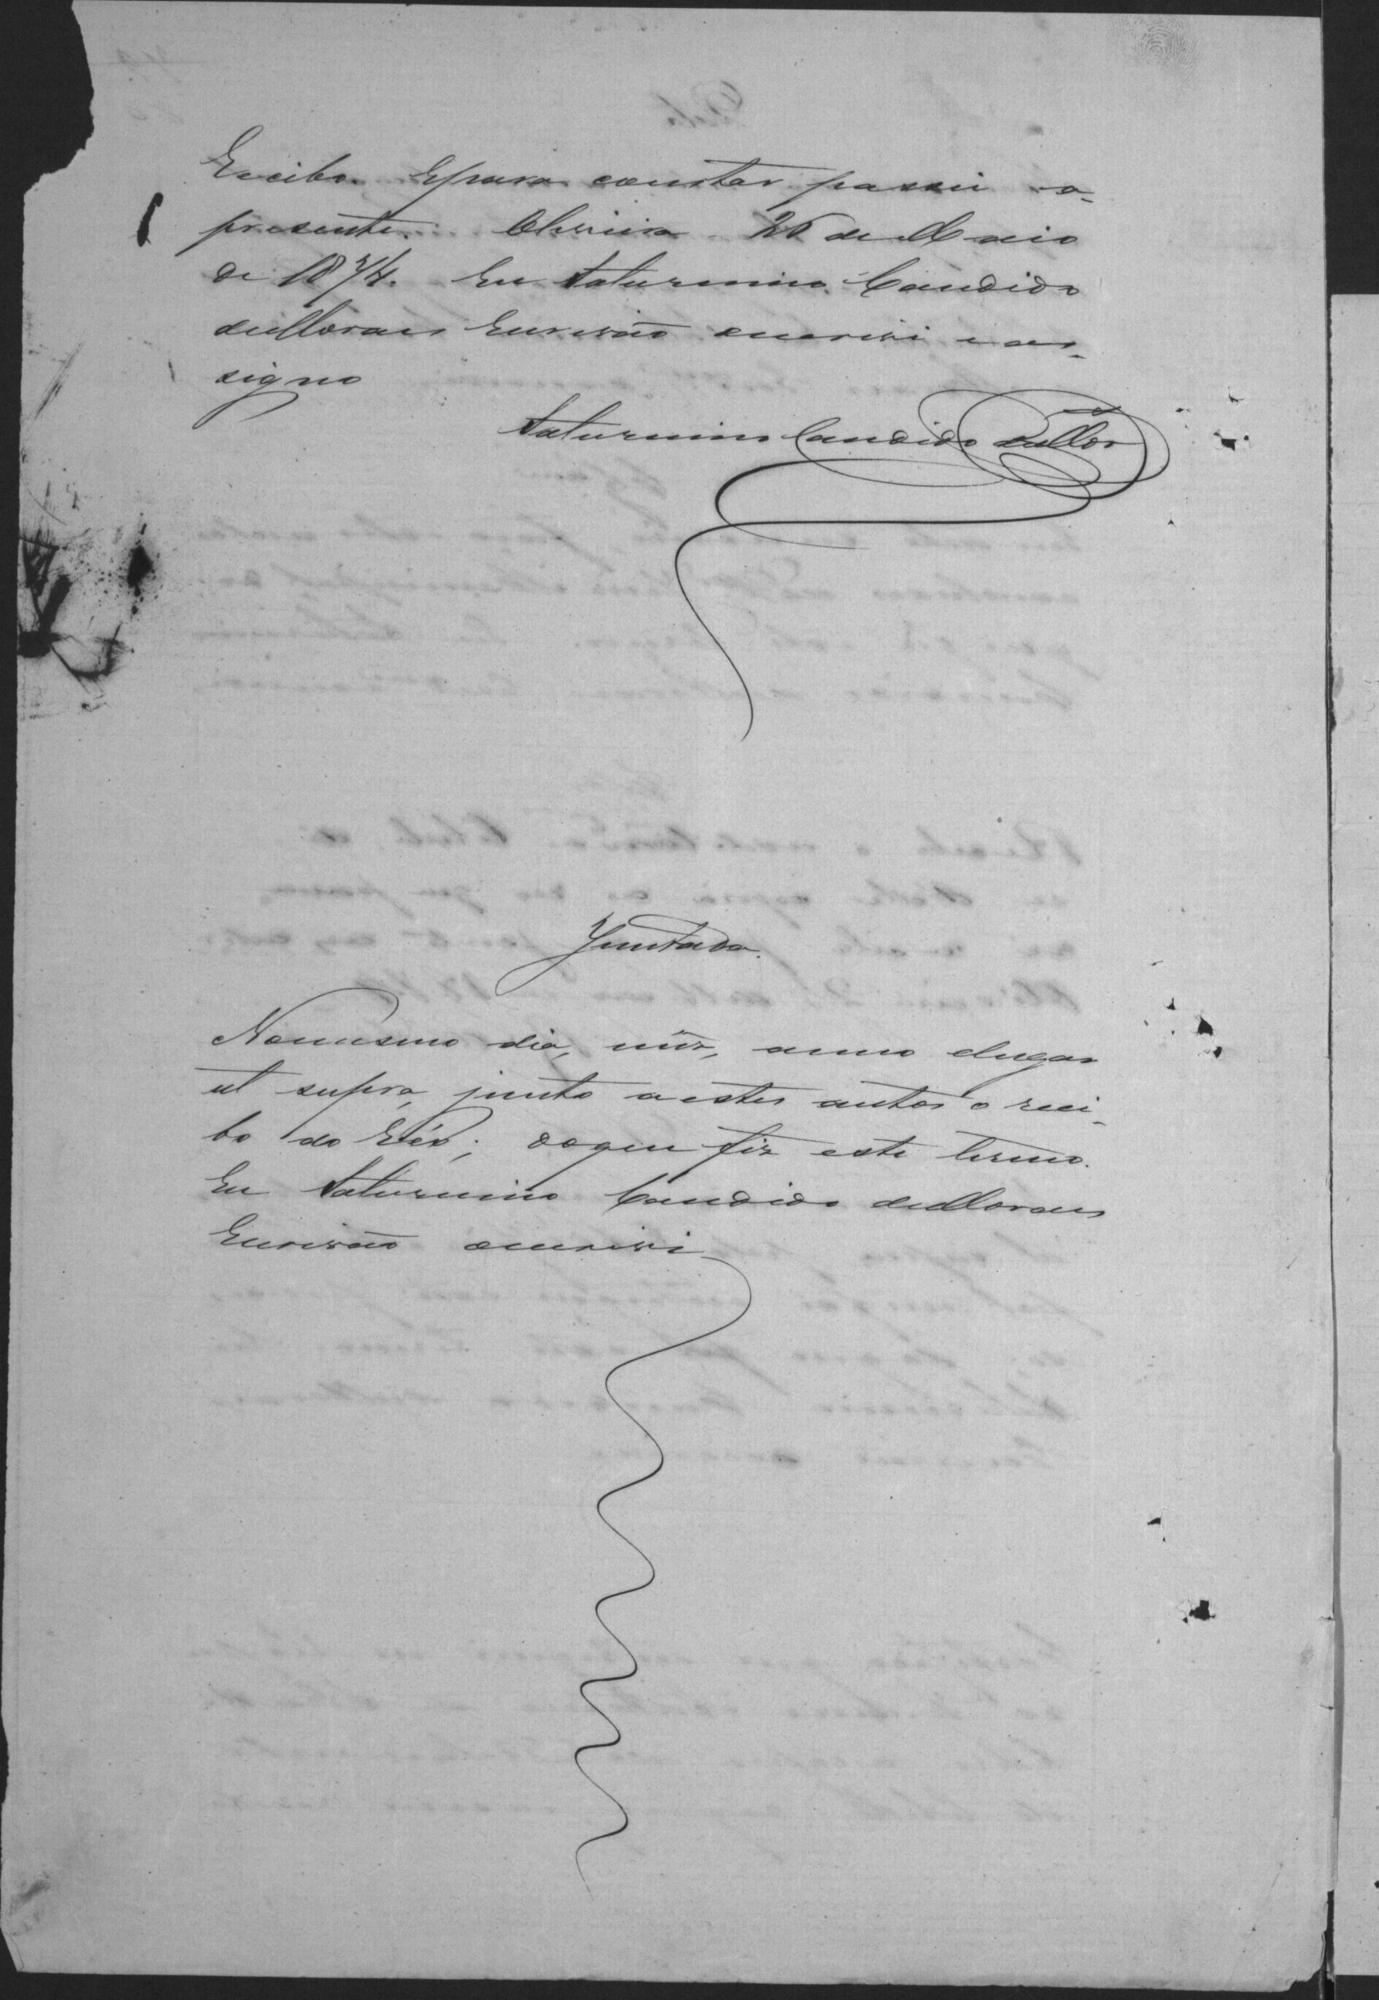 Recibo. E para constar passei o
presente. Oliveira 26 de Maio
de 1874. Eu Saturnino Candido
de Moraes Escrivão escrevi e as-
signo
Saturnino Candido de Mor
Juntada.
No mesmo dia, mez, anno elugar
ut supra, junto a estes autos o reci-
bo do Réo; doque fiz este termo.
Eu Saturnino Candido de Moraes
Escrivão escrevi